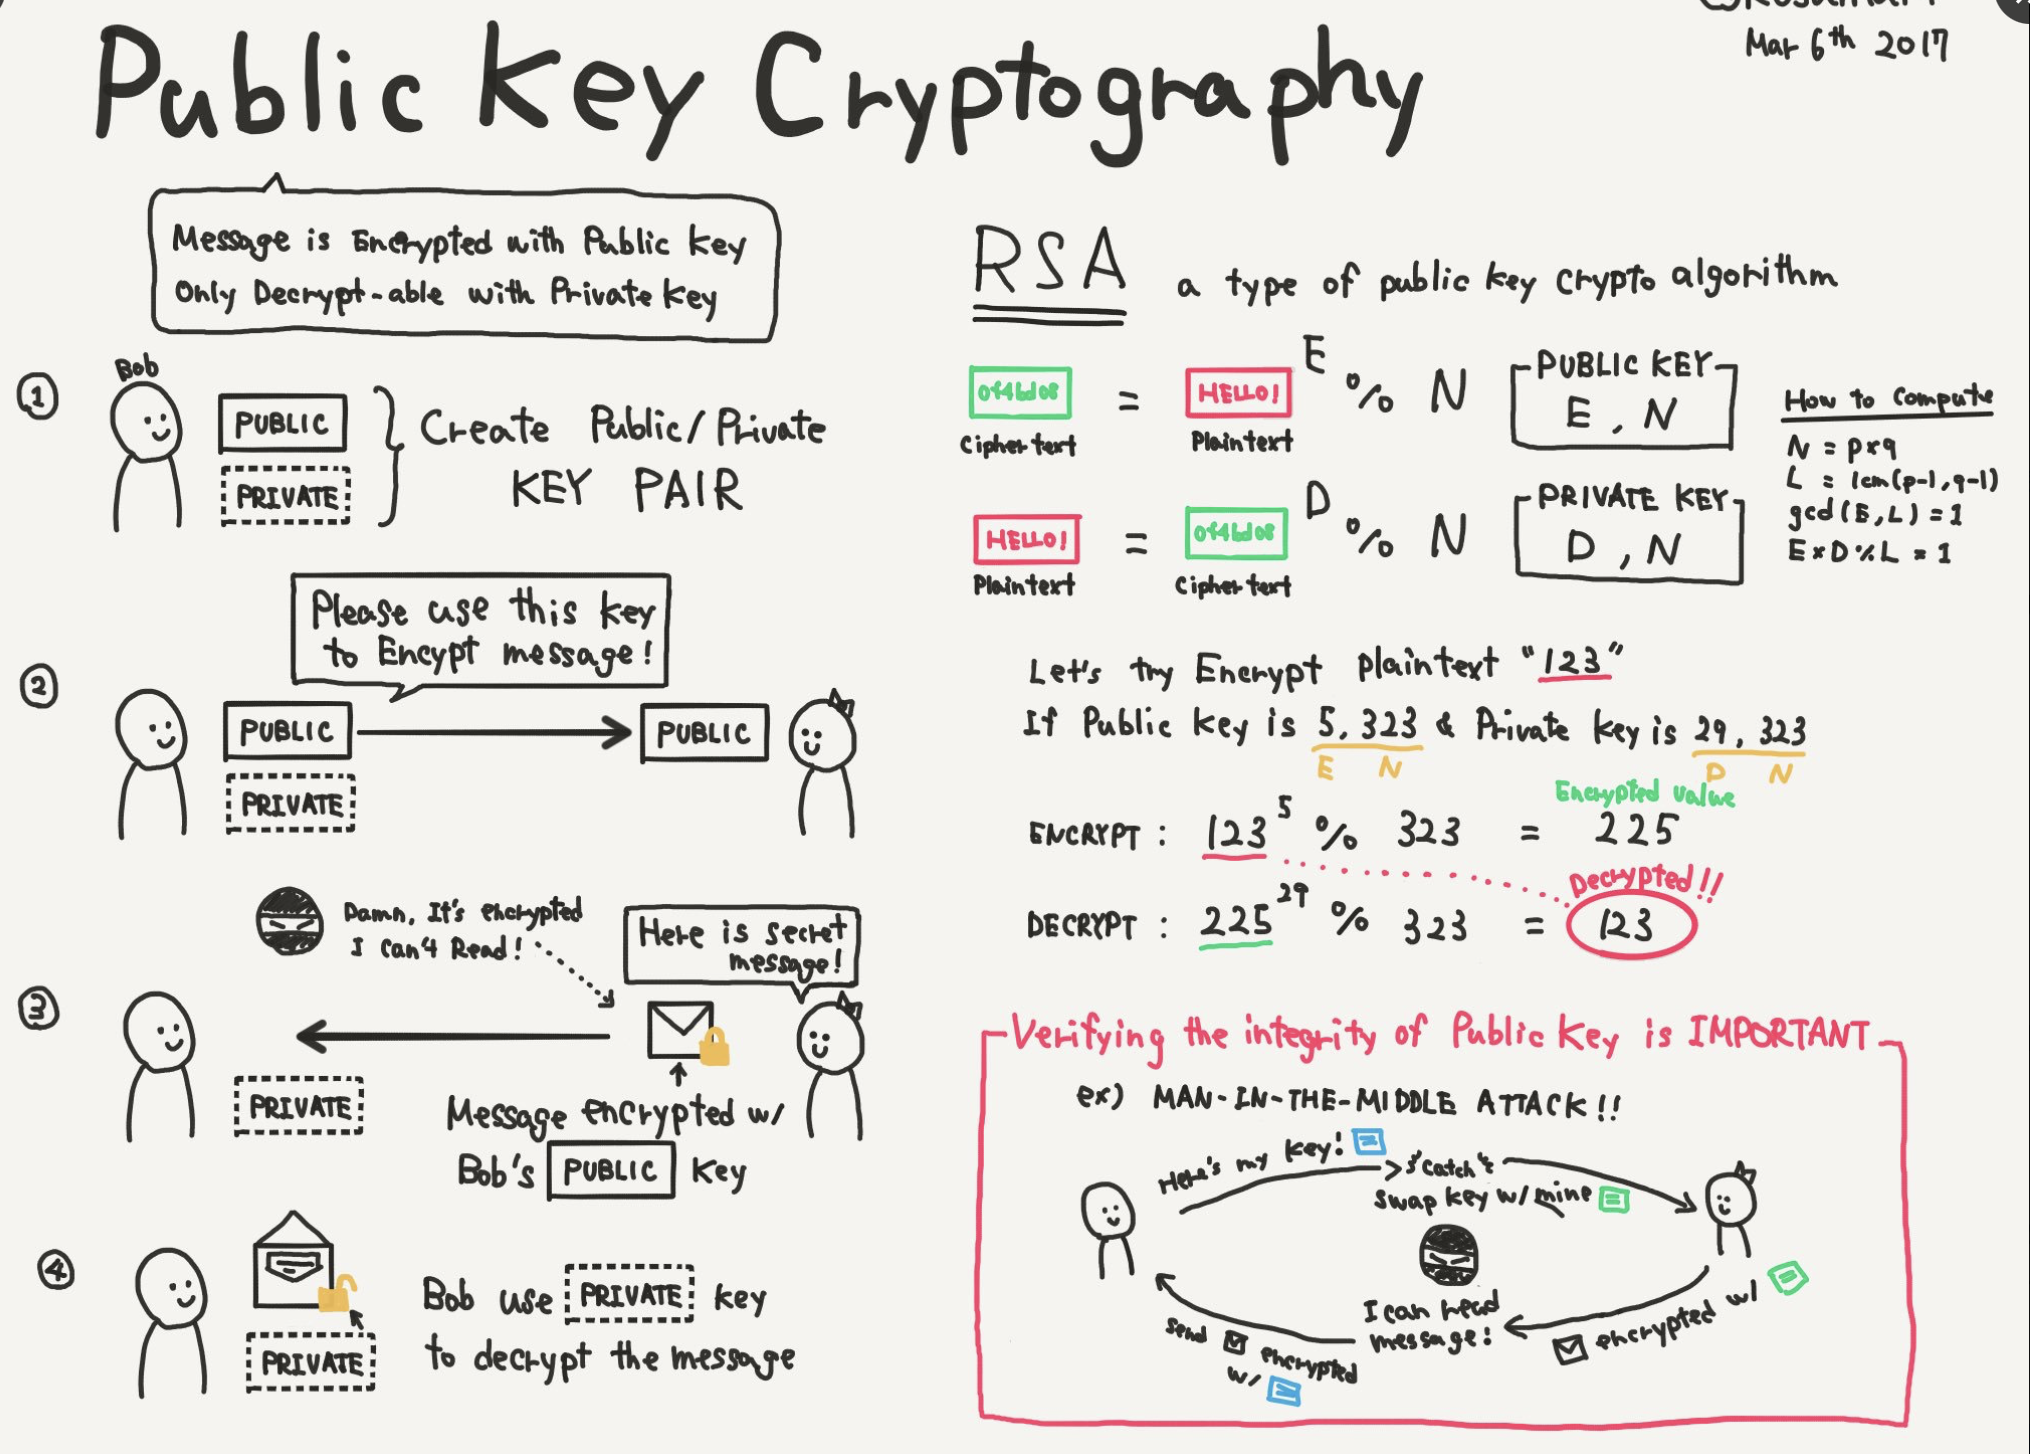 Mar 6th 2017
Public Key Cryptography
Message is Encrypted with Public Key
Only Decrypt-able with Private Key
1
Bob
PUBLIC
PRIVATE
Create Public/Private
KEY PAIR
2
Please use this key
to Encypt message!
PUBLIC
PUBLIC
PRIVATE
3
Damn, It's encrypted
I can't Read!
Here is secret
message!
PRIVATE
Message encrypted w/
Bob's PUBLIC Key
4
PRIVATE
Bob use PRIVATE key
to decrypt the message
RSA a type of public key crypto algorithm
0f4bd08 = HELLO! E % N
Cipher text Plaintext
PUBLIC KEY
E, N
HELLO! = 0f4bd08 D % N
Plaintext Cipher text
PRIVATE KEY
D, N
How to Compute
N = p×q
L = lcm(p-1, q-1)
gcd(E, L) = 1
E×D%L = 1
Let's try Encrypt plaintext "123"
If Public key is 5, 323 & Private key is 29, 323
E N D N
Encrypted value
ENCRYPT : 123 5 % 323 = 225
Decrypted!!
DECRYPT : 225 29 % 323 = 123
Verifying the integrity of Public Key is IMPORTANT
ex) MAN-IN-THE-MIDDLE ATTACK!!
Here's my key!
catch &
swap key w/ mine
I can read
message!
encrypted w/
send encrypted
w/